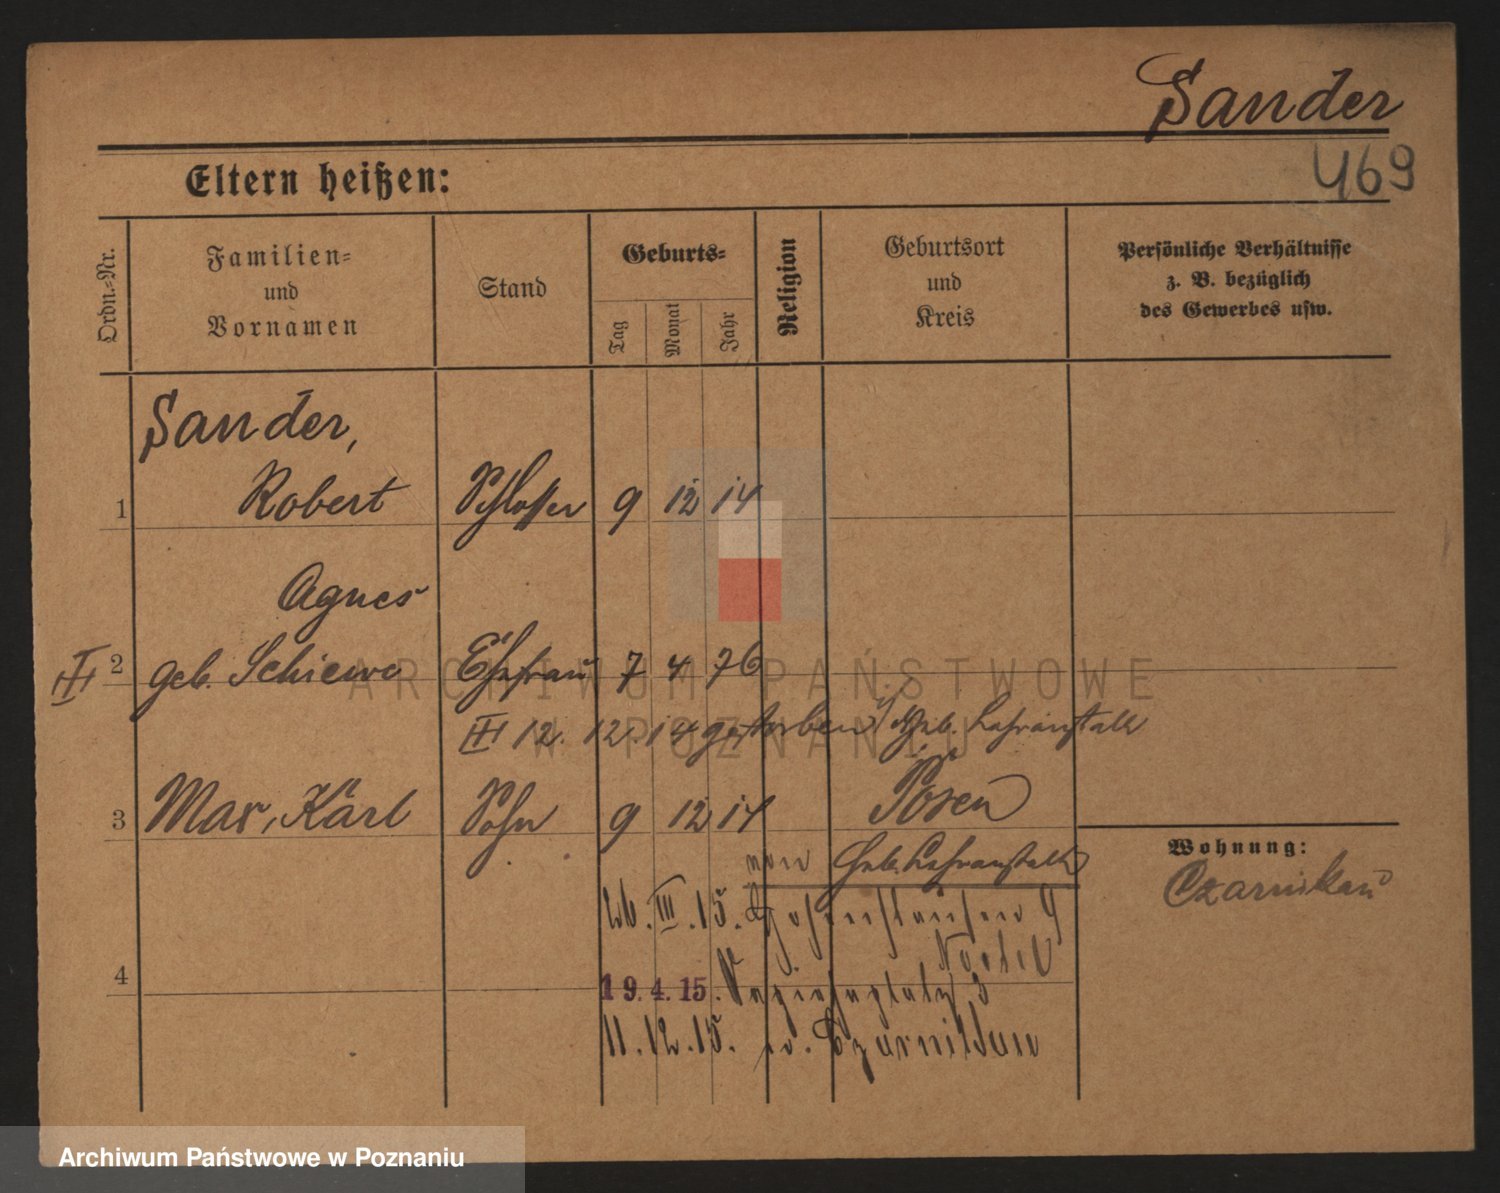 Sander
469
Eltern heißen:
Ordn.-Nr.
Familien-
und
Vornamen
Stand
Geburts-
Tag
Monat
Jahr
Religion
Geburtsort
und
Kreis
Persönliche Verhältnisse
z. B. bezüglich
des Gewerbes usw.
Sander,
1 Robert Schlosser 9 12 14
Agnes
III 2 geb. Schiewe Ehefrau 7 4 76
III 12. 12. 14 gestorben Heb. Lehranstalt
3 Max, Karl Sohn 9 12 14 Posen
von Heb. Lehranstalt
Wohnung:
Czarnikau
26. III. 15.
4
19. 4. 15. 3
11. 12. 15. Czarnikau
ARCHIWUM PAŃSTWOWE
W POZNANIU
Archiwum Państwowe w Poznaniu